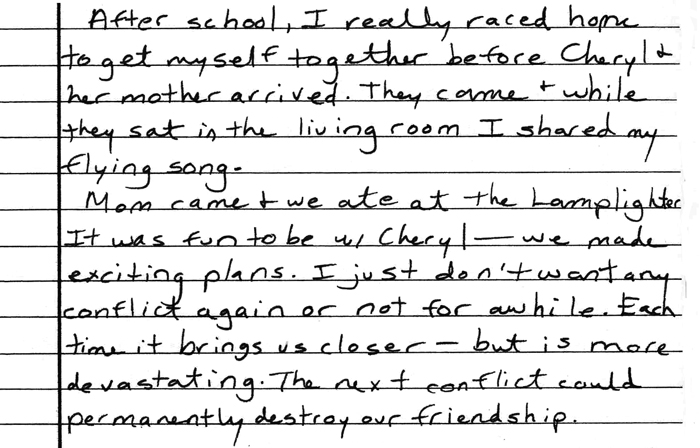 After school, I really raced home
to get myself together before Cheryl &
her mother arrived. They came + while
they sat in the living room I shared my
flying song.
Mom came + we ate at the Lamplighter
It was fun to be w/ Cheryl — we made
exciting plans. I just don't want any
conflict again or not for awhile. Each
time it brings us closer — but is more
devastating. The next conflict could
permanently destroy our friendship.